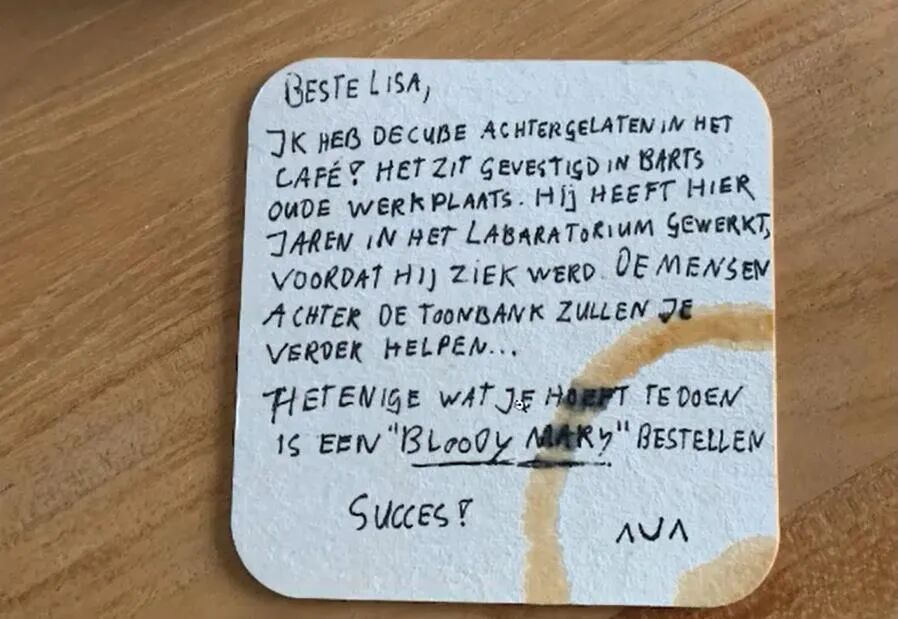 BESTE LISA,
IK HEB DE CUBE ACHTERGELATEN IN HET
CAFÉ! HET ZIT GEVESTIGD IN BARTS
OUDE WERKPLAATS. HIJ HEEFT HIER
JAREN IN HET LABARATORIUM GEWERKT,
VOORDAT HIJ ZIEK WERD. DE MENSEN
ACHTER DE TOONBANK ZULLEN JE
VERDER HELPEN...
HET ENIGE WAT JE HOEFT TE DOEN
IS EEN "BLOODY MARY" BESTELLEN
SUCCES!